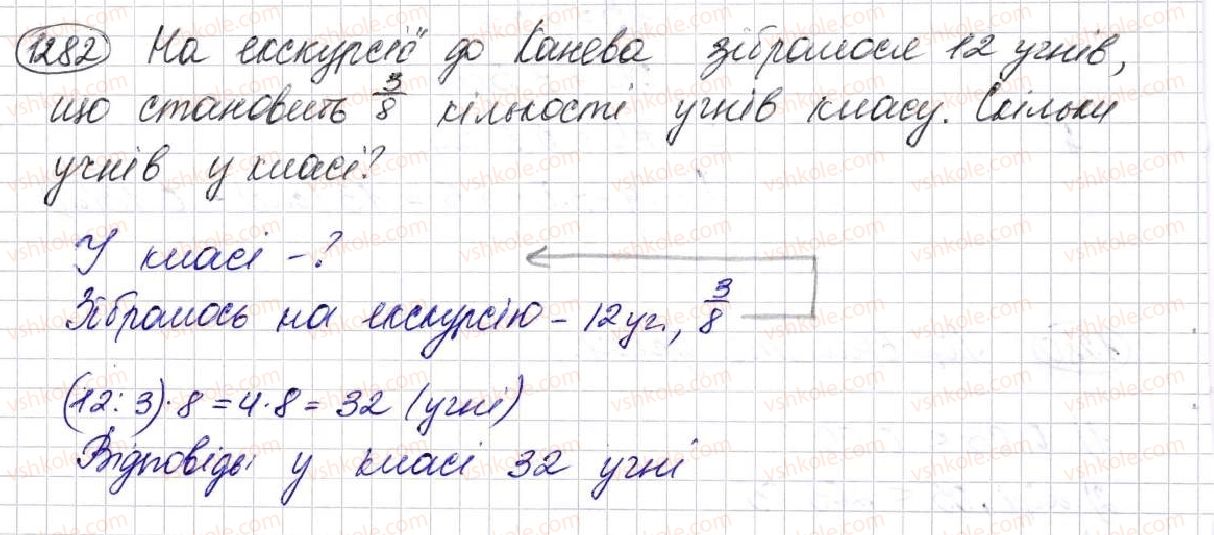 1282 На екскурсії до Канева зібралося 12 учнів,
що становить 3/8 кількості учнів класу. Скільки
учнів у класі?
У класі - ?
Зібралось на екскурсію - 12 уч., 3/8
(12:3)·8=4·8=32 (учні)
Відповідь: у класі 32 учні